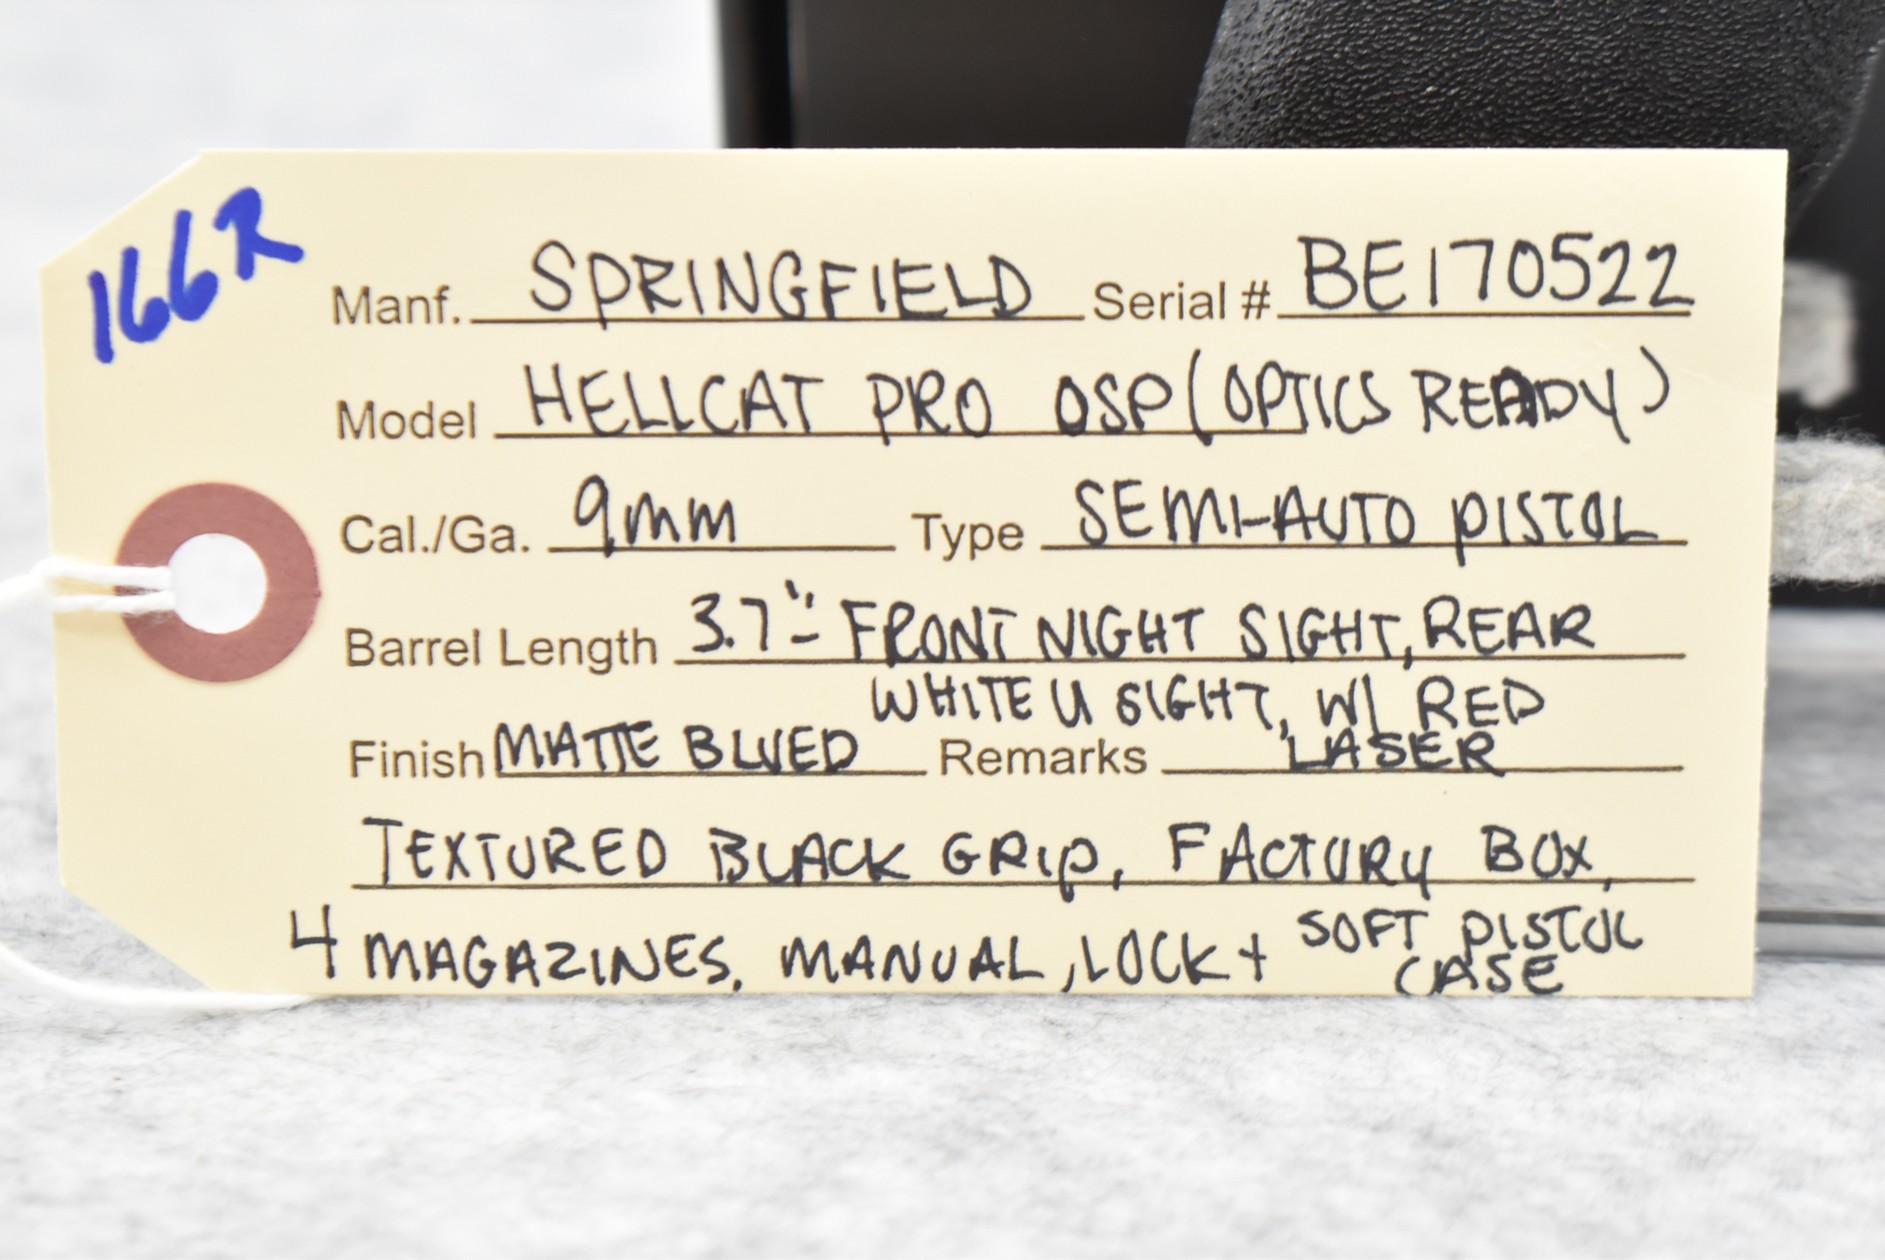 166R
Manf. SPRINGFIELD Serial # BE170522
Model HELLCAT PRO OSP (OPTICS READY)
Cal./Ga. 9mm Type SEMI-AUTO PISTOL
Barrel Length 3.7"- FRONT NIGHT SIGHT, REAR
WHITE U SIGHT, W/ RED
Finish MATTE BLUED Remarks LASER
TEXTURED BLACK GRIP, FACTORY BOX,
4 MAGAZINES, MANUAL, LOCK + SOFT PISTOL
CASE